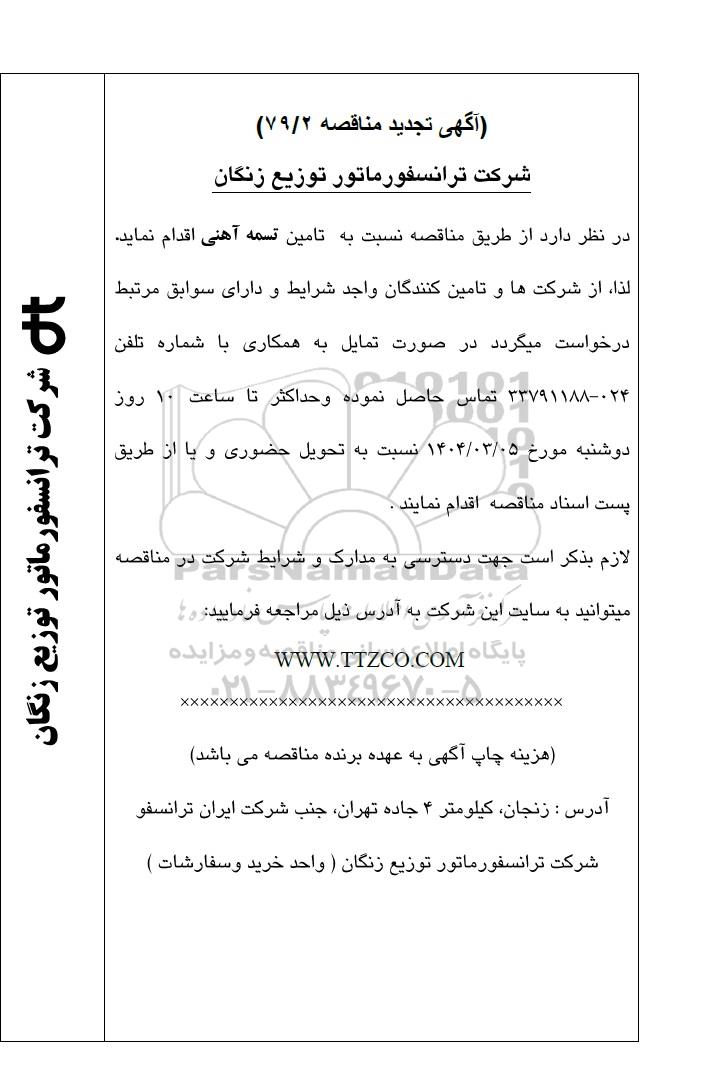 (آگهی تجدید مناقصه ۷۹/۲)
شرکت ترانسفورماتور توزیع زنگان
در نظر دارد از طریق مناقصه نسبت به تامین تسمه آهنی اقدام نماید.
لذا، از شرکت ها و تامین کنندگان واجد شرایط و دارای سوابق مرتبط
درخواست میگردد در صورت تمایل به همکاری با شماره تلفن
۰۲۴-۳۳۷۹۱۱۸۸ تماس حاصل نموده وحداکثر تا ساعت ۱۰ روز
دوشنبه مورخ ۱۴۰۴/۰۳/۰۵ نسبت به تحویل حضوری و یا از طریق
پست اسناد مناقصه اقدام نمایند .
لازم بذکر است جهت دسترسی به مدارک و شرایط شرکت در مناقصه
میتوانید به سایت این شرکت به آدرس ذیل مراجعه فرمایید:
WWW.TTZCO.COM
×××××××××××××××××××××××××××××××××××××××
(هزینه چاپ آگهی به عهده برنده مناقصه می باشد)
آدرس : زنجان، کیلومتر ۴ جاده تهران، جنب شرکت ایران ترانسفو
شرکت ترانسفورماتور توزیع زنگان ( واحد خرید وسفارشات )
dt شرکت ترانسفورماتور توزیع زنگان
ParsNamadData
پایگاه اطلاع رسانی مناقصه و مزایده
۰۲۱-۸۸۳۴۹۶۷۰-۵